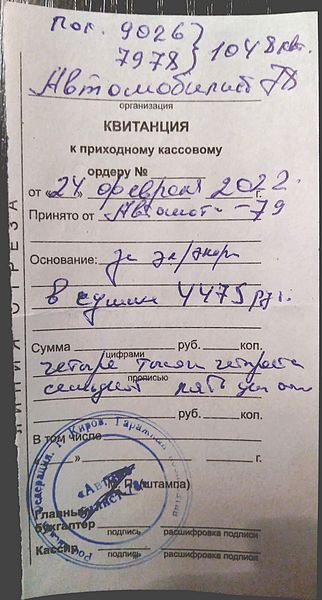 пок. 9026
7978 } 1048 квт.
Автомобилист
организация
КВИТАНЦИЯ
к приходному кассовому
ордеру №
от « 24 » февраля 2022 г.
Принято от Автомот-79
Основание: за эл/энерг
в сумме 4475 руб.
Сумма руб. коп.
цифрами
четыре тысячи четыреста
семьдесят пять руб оп
прописью
руб. коп.
В том числе
« » г.
М. П. (штампа)
Главный
бухгалтер
подпись расшифровка подписи
Кассир
подпись расшифровка подписи
ЛИНИЯ ОТРЕЗА
г. Киров. Гаражный